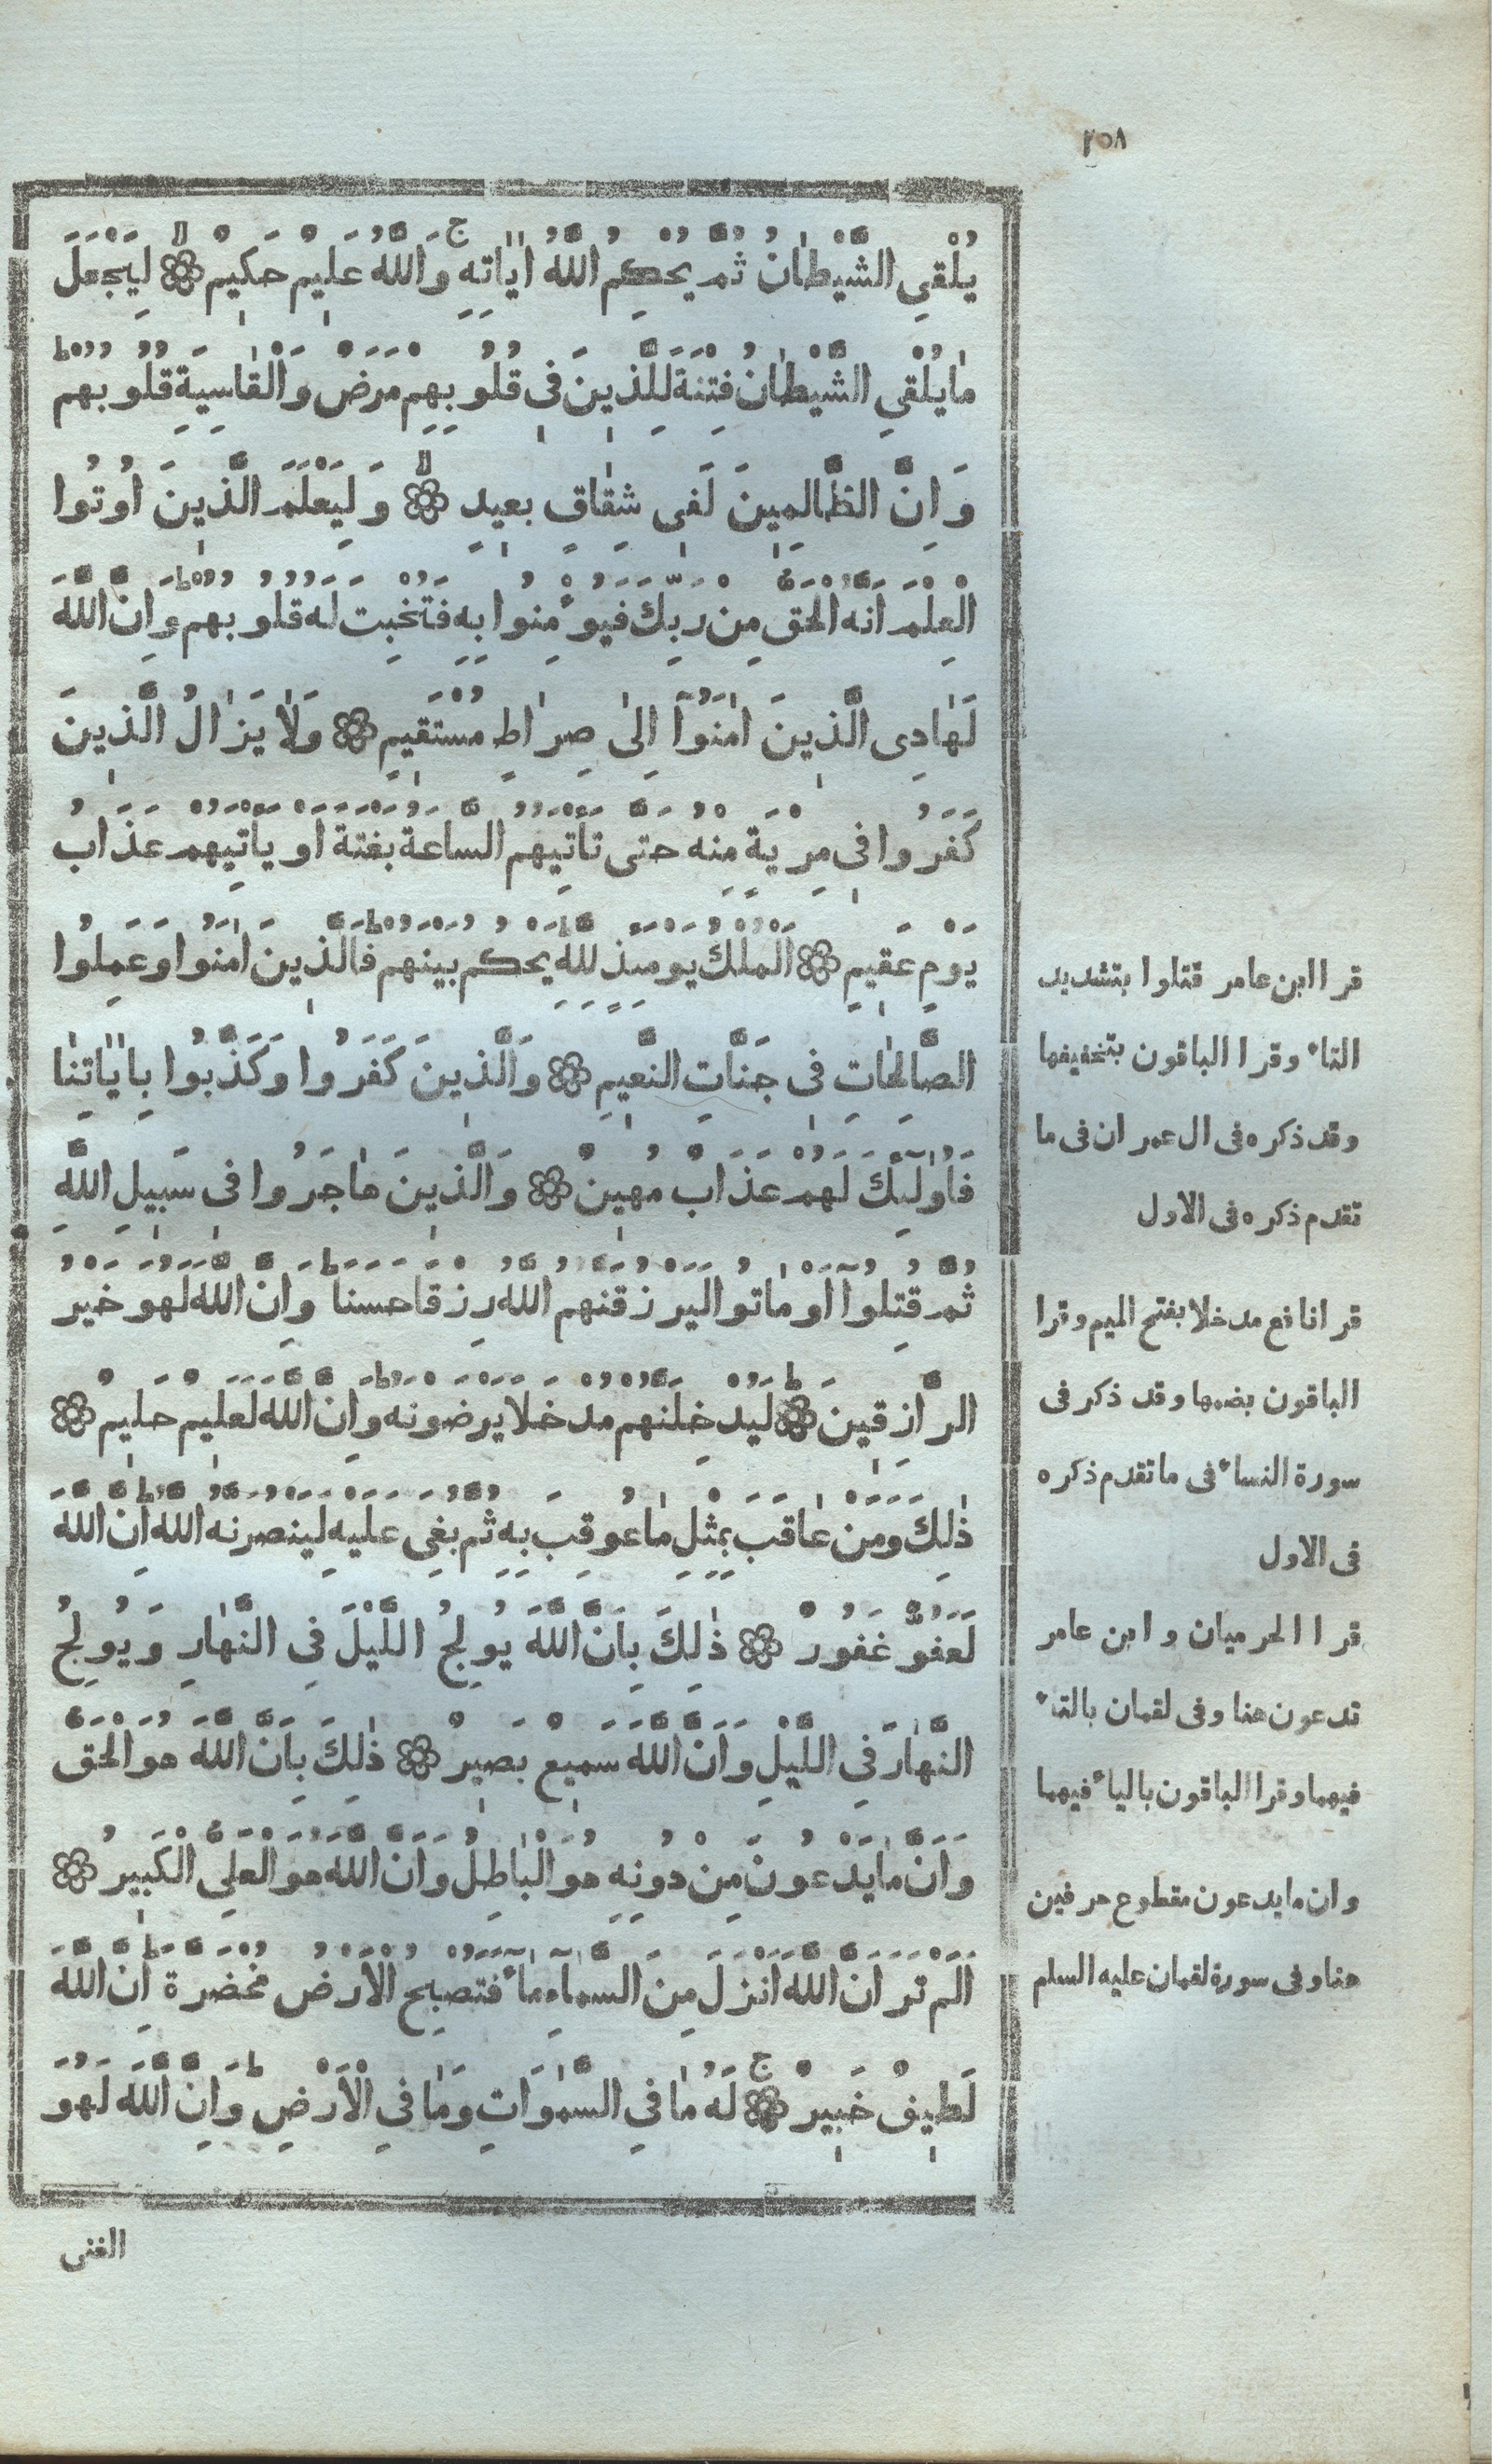 ٢٥٨
يُلْقِى الشَّيْطٰانُ ثُمَّ يُحْكِمُ اللّٰهُ اٰيٰاتِهِ ج وَاللّٰهُ عَلِيمٌ حَكِيمٌ ۞ لا لِيَجْعَلَ
مٰا يُلْقِى الشَّيْطٰانُ فِتْنَةً لِلَّذِينَ فِى قُلُوبِهِمْ مَرَضٌ وَالْقٰاسِيَةِ قُلُوبُهُمْ ط
وَاِنَّ الظّٰالِمِينَ لَفِى شِقٰاقٍ بَعِيدٍ ۞ لا وَلِيَعْلَمَ الَّذِينَ اُوتُوا
الْعِلْمَ اَنَّهُ الْحَقُّ مِنْ رَبِّكَ فَيُؤْمِنُوا بِهِ فَتُخْبِتَ لَهُ قُلُوبُهُمْ ط وَاِنَّ اللّٰهَ
لَهٰادِى الَّذِينَ اٰمَنُوٓا اِلٰى صِرٰاطٍ مُسْتَقِيمٍ ۞ وَلٰا يَزٰالُ الَّذِينَ
كَفَرُوا فِى مِرْيَةٍ مِنْهُ حَتّٰى تَأْتِيَهُمُ السّٰاعَةُ بَغْتَةً اَوْ يَأْتِيَهُمْ عَذَابُ
يَوْمٍ عَقِيمٍ ۞ اَلْمُلْكُ يَوْمَئِذٍ لِلّٰهِ يَحْكُمُ بَيْنَهُمْ ط فَالَّذِينَ اٰمَنُوا وَعَمِلُوا
الصّٰالِحٰاتِ فِى جَنَّاتِ النَّعِيمِ ۞ وَالَّذِينَ كَفَرُوا وَكَذَّبُوا بِاٰيٰاتِنٰا
فَاُولٰٓئِكَ لَهُمْ عَذَابٌ مُهِينٌ ۞ وَالَّذِينَ هٰاجَرُوا فِى سَبِيلِ اللّٰهِ
ثُمَّ قُتِلُوٓا اَوْ مٰاتُوا لَيَرْزُقَنَّهُمُ اللّٰهُ رِزْقًا حَسَنًا ط وَاِنَّ اللّٰهَ لَهُوَ خَيْرُ
الرَّازِقِينَ ۞ ط لَيُدْخِلَنَّهُمْ مُدْخَلًا يَرْضَوْنَهُ ط وَاِنَّ اللّٰهَ لَعَلِيمٌ حَلِيمٌ ۞
ذٰلِكَ وَمَنْ عٰاقَبَ بِمِثْلِ مٰا عُوقِبَ بِهِ ثُمَّ بُغِىَ عَلَيْهِ لَيَنْصُرَنَّهُ اللّٰهُ ط اِنَّ اللّٰهَ
لَعَفُوٌّ غَفُورٌ ۞ ذٰلِكَ بِاَنَّ اللّٰهَ يُولِجُ اللَّيْلَ فِى النَّهٰارِ وَيُولِجُ
النَّهٰارَ فِى اللَّيْلِ وَاَنَّ اللّٰهَ سَمِيعٌ بَصِيرٌ ۞ ذٰلِكَ بِاَنَّ اللّٰهَ هُوَ الْحَقُّ
وَاَنَّ مٰا يَدْعُونَ مِنْ دُونِهِ هُوَ الْبٰاطِلُ وَاَنَّ اللّٰهَ هُوَ الْعَلِىُّ الْكَبِيرُ ۞
اَلَمْ تَرَ اَنَّ اللّٰهَ اَنْزَلَ مِنَ السَّمٰٓاءِ مٰٓاءً فَتُصْبِحُ الْاَرْضُ مُخْضَرَّةً ط اِنَّ اللّٰهَ
لَطِيفٌ خَبِيرٌ ۞ ج لَهُ مٰا فِى السَّمٰوَاتِ وَمٰا فِى الْاَرْضِ ط وَاِنَّ اللّٰهَ لَهُوَ
الغنى
قرا ابن عامر قتلوا بتشديد
التاء وقرا الباقون بتخفيفها
وقد ذكره فى ال عمران فى ما
تقدم ذكره فى الاول
قرا نافع مدخلا بفتح الميم وقرا
الباقون بضمها وقد ذكر فى
سورة النساء فى ما تقدم ذكره
فى الاول
قرا الحرميان وابن عامر
تدعون هنا وفى لقمان بالتاء
فيهما وقرا الباقون بالياء فيهما
وان ما يدعون مقطوع حرفين
هنا وفى سورة لقمان عليه السلم